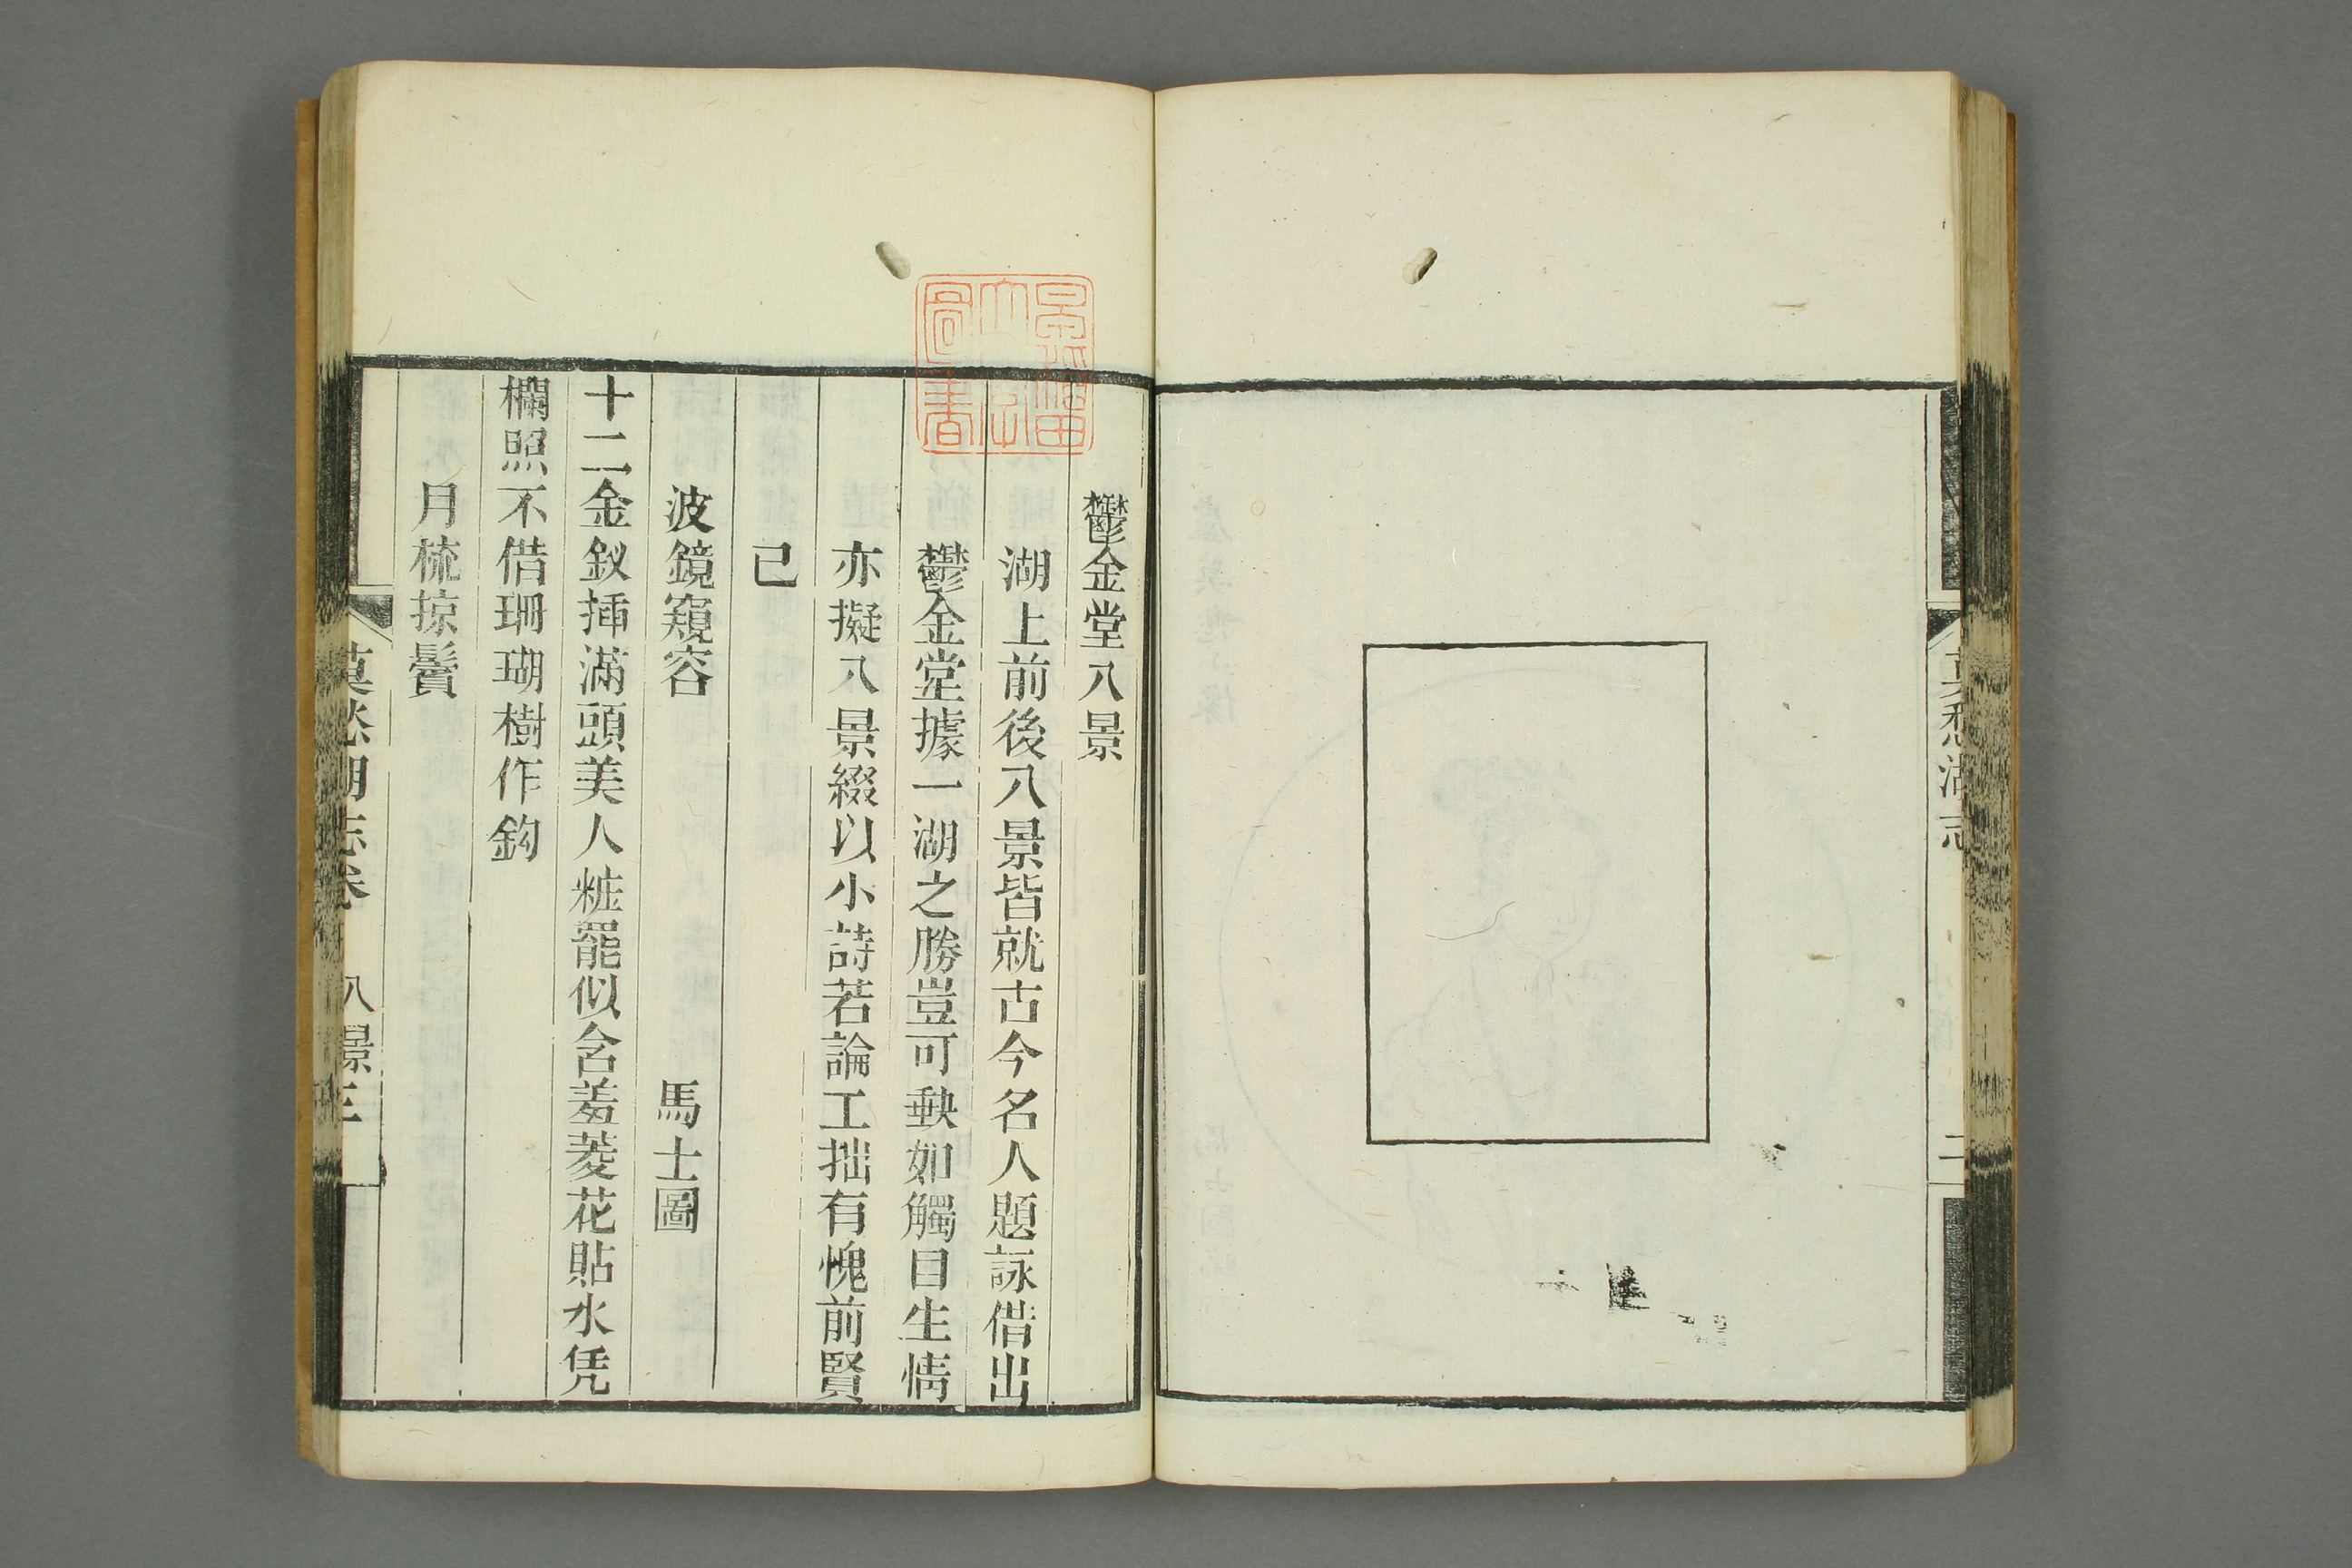 莫愁湖志
二
鬱金堂八景
湖上前後八景皆就古今名人題詠借出
鬱金堂據一湖之勝豈可缺如觸目生情
亦擬八景綴以小詩若論工拙有愧前賢
已
波鏡窺容
馬士圖
十二金釵揷滿頭美人粧罷似含羞菱花貼水凭
欄照不借珊瑚樹作鈎
月梳掠鬢
莫愁湖志卷
八景
三